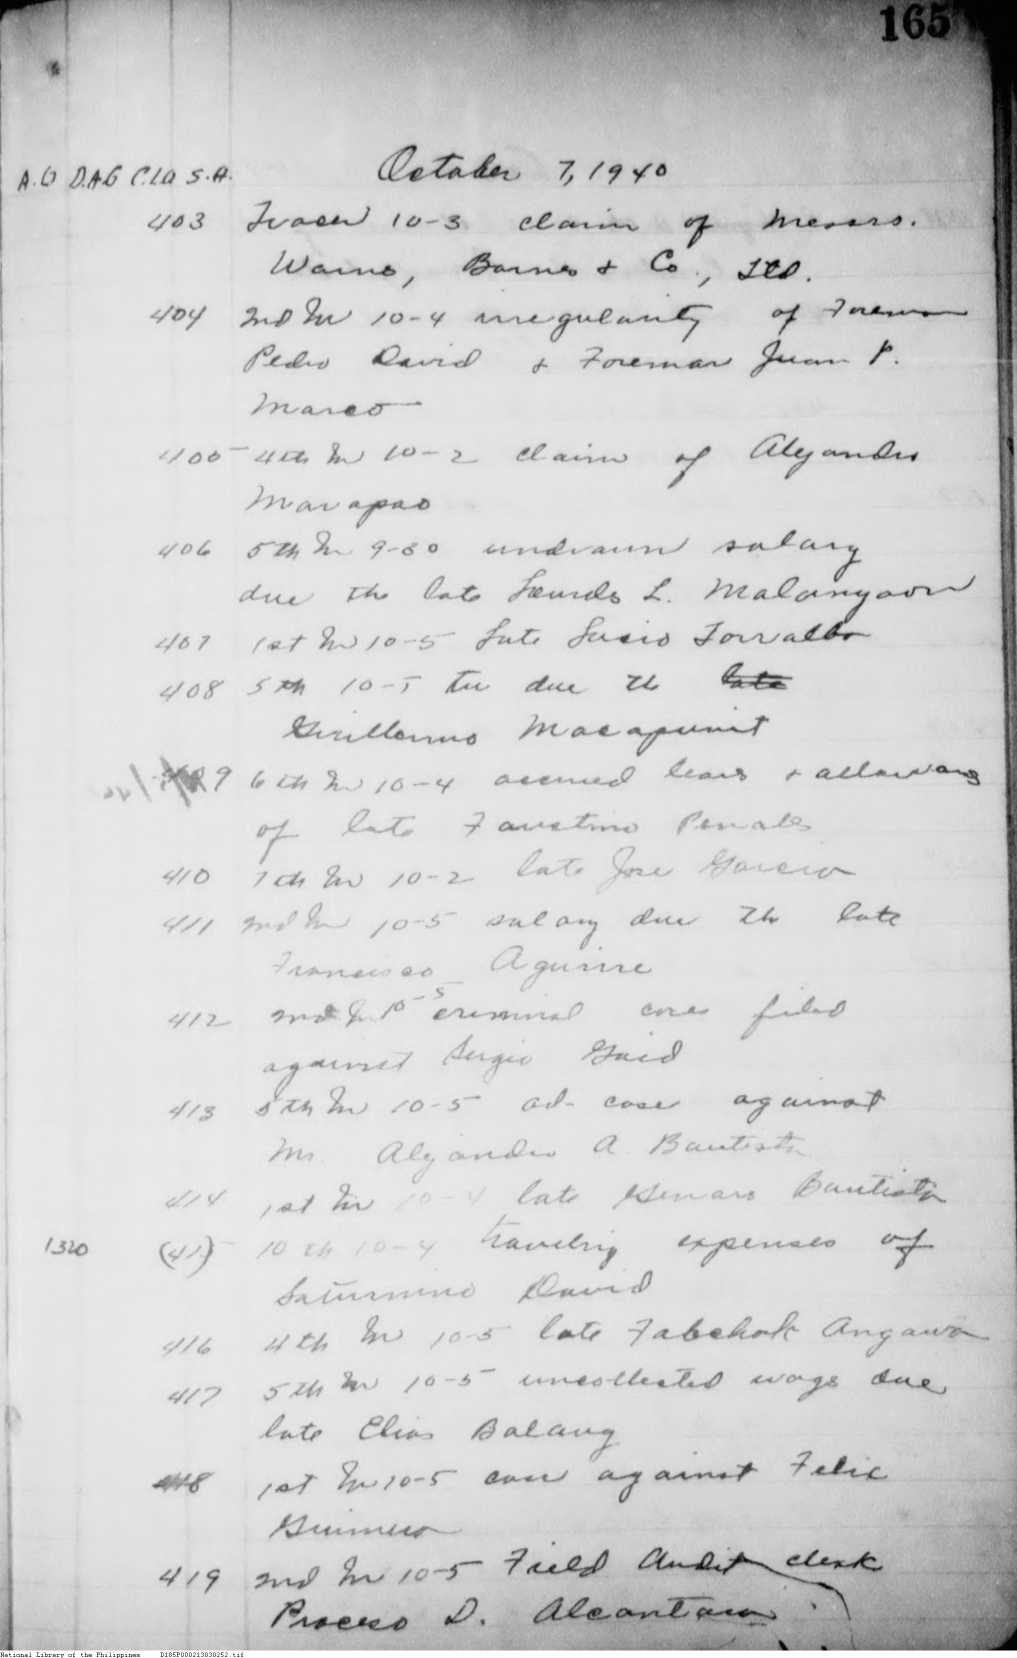 165
October 7, 1940
A.G D.A.G C.I.A S.A.
403 Tracer 10-3 claim of Messrs.
Warns, Barnes & Co., Ltd.
404 2nd In 10-4 irregularity of Foreman
Pedro David & Foreman Juan P.
Marco
405 4th In 10-2 claim of Alejandro
Marapao
406 5th In 9-30 undrawn salary
due the late Lourdes L. Malangaon
407 1st In 10-5 late Lucio Torralba
408 5th 10-5 due the late
Guillermo Macapunit
409 6th In 10-4 accrued leave & allowans
of late Faustino Penales
410 7th In 10-2 late Jose Garcia
411 2nd In 10-5 salary due the late
Francisco Aguirre
412 2nd In 10-5 criminal case filed
against Sergio Gaid
413 5th In 10-5 ad- case against
Mr. Alejandro A. Bautista
414 1st In 10-4 late Genaro Bautista
1320 (415) 10th 10-4 traveling expenses of
Saturnino David
416 4th In 10-5 late Fabchok Angawa
417 5th In 10-5 uncollected wage due
late Elias Balang
418 1st In 10-5 case against Felix
419 2nd In 10-5 Field Audit clerk
Proceso D. Alcantara
National Library of the Philippines D185P000213030252.tif